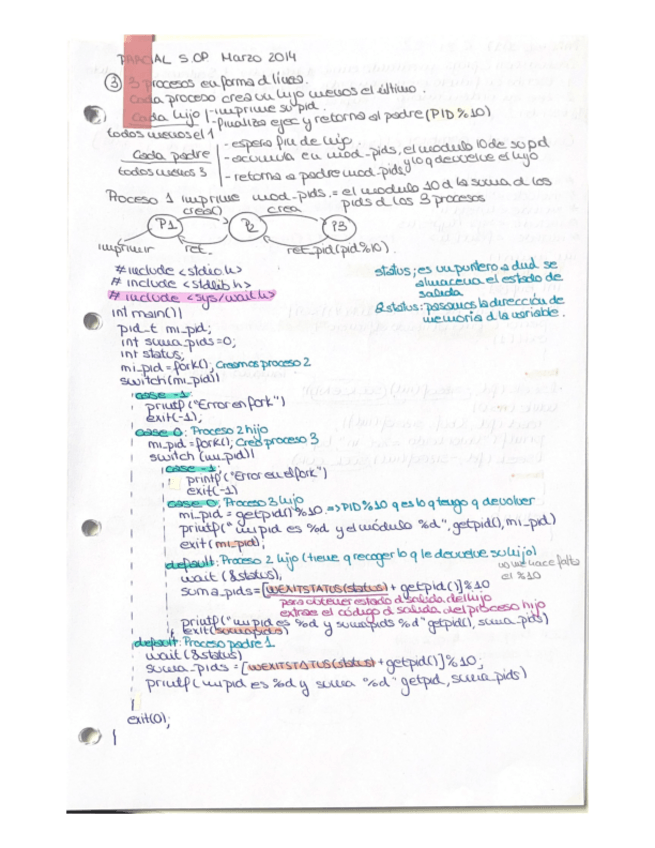 PARCIAL S.OP Marzo 2014
③ 3 procesos en forma d línea.
Cada proceso crea un hijo menos el último.
Cada hijo - imprime su pid.
todos menos el 1 - finaliza ejec y retorna al padre (PID%10)
Cada padre - espera fin de hijo.
todos menos 3 - acumula en mod-pids, el modulo 10 de su pid y lo q devuelve el hijo
- retorna a padre mod-pids.
Proceso 1 imprime mod-pids. = el modulo 10 d la suma d los pids d los 3 procesos
crea() crea
P1 P2 P3
imprimir ret. ret_pid(pid%10).
#include <stdio.h>
# include <stdlib h>
# include <sys/wait.h>
status; es un puntero a dnd se
almacena el estado de
salida
&status: pasamos la dirección de
memoria d la variable.
int main(){
pid_t mi_pid;
int suma_pids=0;
int status;
mi_pid = fork(); Creamos proceso 2
switch(mi_pid){
case -1:
printf("Error en fork")
exit(-1);
case 0: Proceso 2 hijo
mi_pid = fork(); Creo proceso 3
switch (mi_pid){
case -1:
printf("Error en el fork")
exit(-1)
case 0: Proceso 3 hijo
mi_pid = getpid()%10 => PID%10 q es lo q tengo q devolver
printf("mi pid es %d y el módulo %d", getpid(), mi_pid)
exit(mi_pid);
default: Proceso 2 hijo (tiene q recoger lo q le devuelve su hijo)
wait (&status);
no me hace falta
el %10
suma_pids=[WEXITSTATUS(status)+getpid()]%10
para obtener estado d salida del hijo
extrae el código d salida del proceso hijo
printf("mi pid es %d y suma pids %d" getpid(), suma_pids)
exit(suma_pids)
default: Proceso padre 1
wait(&status)
suma_pids = [WEXITSTATUS(status)+getpid()]%10;
printf(mi pid es %d y suma %d" getpid, suma_pids)
}
exit(0);
}